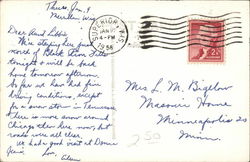 Thurs. Jan. 9
Dear Aunt Libbie
We're staying here just
north of Black River Falls
tonight & will be back
home tomorrow afternoon.
So far we have had fine
driving conditions, except
for a snow storm in Tennessee.
There is more snow around
Chicago than here now, but
roads were all clear.
We had a good visit at
Love,
SUPERIOR, WIS.
JAN
4-PM
1958
2¢
Mrs L. M. Bigelow
Masonic Home
Minneapolis 20
Minn.
250